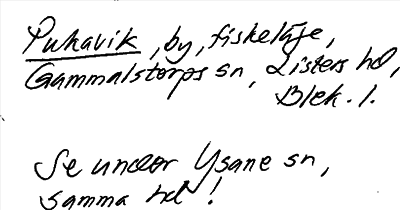 Pukavik, by, fiskeläje,
Gammalstorps sn, Listers hd,
Blek. l.
Se under Ysane sn,
samma hd!